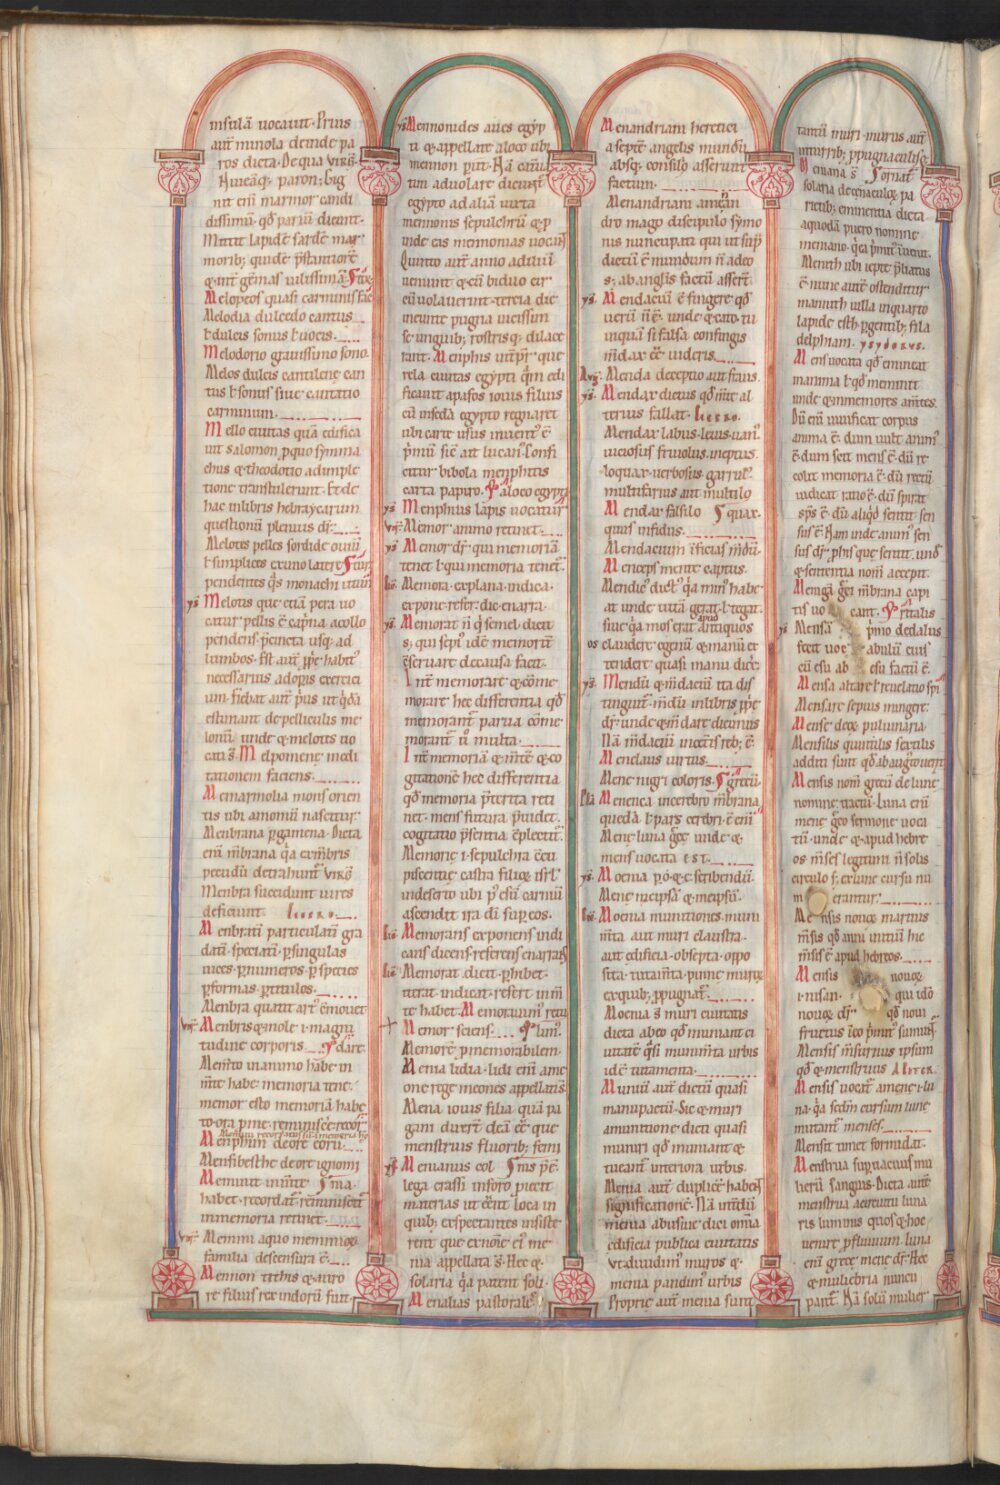 insulā vocavit · Prius
aut̄ minoia deinde pa
ros dicta · De qua virḡ
Niveāq; paron; Gig
nit eni marmor candi
dissimū · qd̄ pariū dicunt ·
Mittit lapidē sardē mar
morib; quidē p̄stantiorē
Melopeos quasi carminis fac
Melodia dulcedo cantus
ł dulcis sonus ł vocis ·
Melodorio gravissimo sono ·
Melos dulcis cantilenę can
tus ł sonus sive cantatio
carminum ·
Mello civitas quā edifica
vit salomon p̄ quo symma
chus & theodotio adimple
tione transtulerunt · Et de
hac in libris hebraycarum
questionū plenius dr̄ ·
Melotes pelles sordide oviū
pendentes qs̄ monachi
Melotis que etiā pera vo
catur pellis ē cap̄na · a collo
pendens p̄cincta usq; ad
lumbos · Est aut̄ pp̄e habit᷒
necessarius ad opis exerciti
um · fiebat aut̄ p̄us ut qdā
estimant de pelliculis me
lonū · unde & melotes vo
cati s̄ · Melpomene medi
tationem faciens ·
Memarmolia mons orien
tis ubi amomū nascitur
Menbrana pgamena · Dicta
eni m̄brana qa ex m̄bris
pecudū detrahunt᷒ virḡ
Menbra succedunt vires
deficiunt ·
Menbratī particulatī gra
datī · speciatī · p singulas
vices · p numeros · p species
p formas · p titulos ·
Menbra quatit art᷒ cmovet
Menbris & mole · i · magni
tudine corporis
Mem̄to in animo habe · in
m̄te habe · memoria tene ·
memor esto · memoriā habe
Menphim de ore coru
Mensibesthe de ore ignomi
Meminit · in m̄te
habet · recordat̄ · reminiscit̄
in memoria retinet ·
Memmi a quo memmiox
familia descensura ē ·
Mennon tithis & auro
re filius rex indorū fuit
Mennonides aves egyp
ti & appellate a loco ubi
mennon pit · Nā cat̄va
tim advolare dicunt̄
egypto ad aliā iuxta
mennonis sepulchrū & p
inde eas mennonias vocari
Quinto aut̄ anno ad iliū
veniunt & cū biduo cir
cū volaverint · tercia die
ineunt pugnā vicissim
se unguib; rostrisq; dilace
rant · Menphis
civitas egypti qm̄ edi
ficavit apafos iovis filius
cū in scdā egypto regnaret
ubi carte usus invent᷒ ē
p̄mū sic̄ ait lucan᷒ Confi
citur bibola menphitis
carta papiro ·
Menphius lapis vocatur
Memor animo retinet ·
Memor dr̄ · qui memoriā
tenet ł qui memoria tenet᷒ ·
Memora · explana · indica ·
expone · refer · dic · enarra ·
Memorat n̄ q̄ semel dicit
s; qui sepi᷒ idē memorit̄
Int̄ memorare & cōme
morare hec differentia qd̄
memorant̄ parva · cōme
morant̄ u᷒ multa ·
Int̄ memoriā & m̄tē & co
gitationē hec differentia
qd̄ memoria p̄terita reti
net · mens futura p̄videt ·
cogitatio p̄sentia cplectit᷒ ·
Memorię · i · sepulchra ccu
piscentię castra filiox isrl̄
in deserto ubi p᷒ esū carniū
ascendit ira dī sup eos ·
Memorans exponens indi
cans · dicens · referens · enarrans
Memorat · dicit · phibet ·
iterat · indicat · refert · in m̄
te habet · Memoravim᷒
Memor · sciens ·
Memorē p memorabilem ·
Menia lidia · lidi eni a me
one rege meones appellati s̄ ·
Mena iovis filia quā pa
gani dixert̄ deā eē que
menstruis fluorib; femi
Menianus col
lega crassi in foro piecit
materias ut eēnt loca in
quib; expectantes insiste
rent · que ex noīe ei᷒ me
nia appellata s̄ · Hec &
solaria qa patent soli ·
Menalias pastorales
Menandriani heretici
a septē angelis mundū
absq; consilio asserunt
factum ·
Menandriani a menan
dro mago discipulo symo
nis nuncupati qui ut sup̄
dictū ē mundum n̄ a deo
s; ab anglis factū assert̄ ·
Mendaciū ē fingere qd̄
verū n̄ ē · unde & cato · tu
inquā si falsa confingis
m̄dax eē videris ·
Menda · deceptio aut fraus ·
Mendax dictus qd̄ m̄te al
terius fallat ·
Mendax · labus · levis · van᷒ ·
viciosus · frivolus · ineptus ·
loquax · verbosus · garrul᷒
multifarius aut multilo
Mendax falsilo quax ·
quus infidus ·
Mendacium īficias m̄dū ·
Menceps mente captus ·
Mendic᷒ dict᷒ qa min᷒ habe
at unde vitā gerat ł tegat ·
sive qa mos erat apud antiquos
os claudere egenū & manū ex
tendere quasi manu dicē ·
Mendū & m̄daciū ita dis
tinguit̄ · m̄dū in libris pp̄e
dr̄ · unde & m̄dare dicimus
Nā m̄daciū in cet̄is reb; ē ·
Menclavis virtus ·
Menc nigri coloris · greciū
Menenca in cerebro m̄brana
quedā ł pars cerebri · ē eni
Menę luna gr̄ce unde &
mens vocata est ·
Moenia p o & e scribendū ·
Menę meipsā & meipsū ·
Moenia · munitiones · muni
m̄ta aut muri · claustra ·
aut edificia · obsepta · oppo
sita · tutam̄ta · pinne murox
ex quib; ppugnat᷒ ·
Moenia s̄ muri civitatis
dicta ab eo qd̄ muniant ci
vitatē qsi munim̄ta urbis
idē tutamenta ·
Muniū aut̄ dictū quasi
manu pactū · Sic & muri
a munitione dicti quasi
muniri qd̄ muniant &
tueant̄ interiora urbis ·
Menia aut̄ duplicē habent
significationē · Nā int̄dū
menia abusive dici omīa
edificia publica civitatis
Ut dividim᷒ muros &
menia pandim᷒ urbis
Proprie aut̄ menia sunt
tantū muri · murus aut̄
in turrib; ppugnaculisq;
solaria de cenaculox pa
rietib; eminentia dicta
a quodā puero nomine
meniano · qa p̄mit᷒ invenit ·
Menith ubi iepte p̄liatus
ē nunc aut̄ ostenditur
manith villa in quarto
lapide esth pgentib; fila
delphiam · ysydorus ·
Mens vocata qd̄ emineat
in anima ł qd̄ meminit
unde & inmemores am̄tes ·
Dū eni vivificat corpus
anima ē · dum vult anim᷒
ē · dum scit mens ē · dū re
colit memoria ē · dū rectū
iudicat ratio ē · dū spirat
sp̄s ē · dū aliqd̄ sentit sen
sus ē · Nam inde anim᷒ sen
sus dr̄ p his que sentit · unđ
& sententia nom̄ accepit ·
Mensa p̄mo dedalus
fecit
eū esu ab esu factū ē ·
Mensa altare ł revelatio
Mensare sepius mingere ·
Mense decę pulvinaria ·
Mensilis quintilis sextilis
additi sunt qd̄ ab augto
Mensis nom̄ grecū de lunę
nomine tractū · luna eni
menę gr̄co sermone voca
tū · unde & apud hebre
os m̄ses legitimi n̄ solis
circulo s; ex lunę cursu nu
m erantur ·
Mensis novox martius
m̄sis qd̄ anni initiū hic
m̄sis ē apud hebreos ·
Mensis novox
· i · nisan · qui idō
novox dr̄ · qd̄ novi
fructus ī eo p̄mit᷒ sumūt̄
Mensis m̄surnus ipsum
qd̄ & menstruus Albrex ·
Mensis vocat̄ a mene · i · lu
na · qa scdm cursum lunę
mutant̄ menses ·
Mensit · timet formidat ·
Menstrua supvacuus mu
lierū sanguis · Dicta aut̄
menstrua a circuitu luna
ris luminis quo sex hoc
venire · p fluvium luna
eni grece mene dr̄ · Hec
& muliebria nuncu
pant᷒ Nā solū mulier